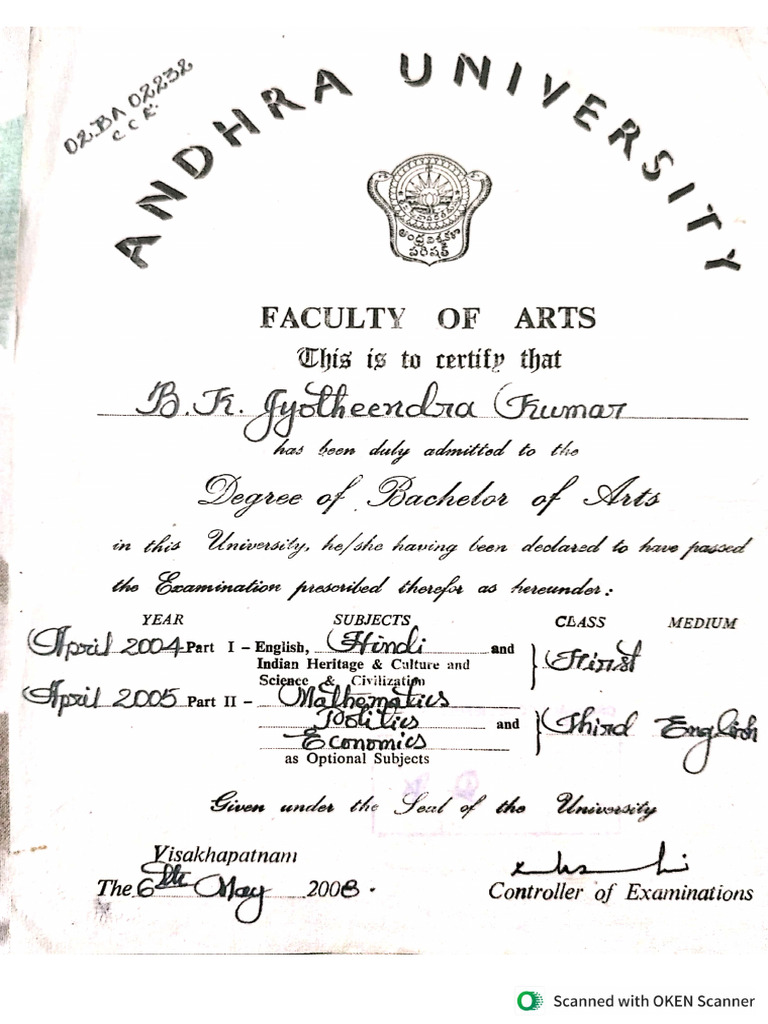 02.BA 02232
C C R
ANDHRA UNIVERSITY
ఆంధ్ర విశ్వకళా
పరిషత్
FACULTY OF ARTS
This is to certify that
B.K. Jyotheendra Kumar
has been duly admitted to the
Degree of Bachelor of Arts
in this University, he/she having been declared to have passed
the Examination prescribed therefor as hereunder:
YEAR SUBJECTS CLASS MEDIUM
April 2004 Part I – English, Hindi and
Indian Heritage & Culture and First
Science & Civilization
April 2005 Part II – Mathematics
Politics and Third English
Economics
as Optional Subjects
Given under the Seal of the University
Visakhapatnam
The 6th May 2008.
Controller of Examinations
Scanned with OKEN Scanner